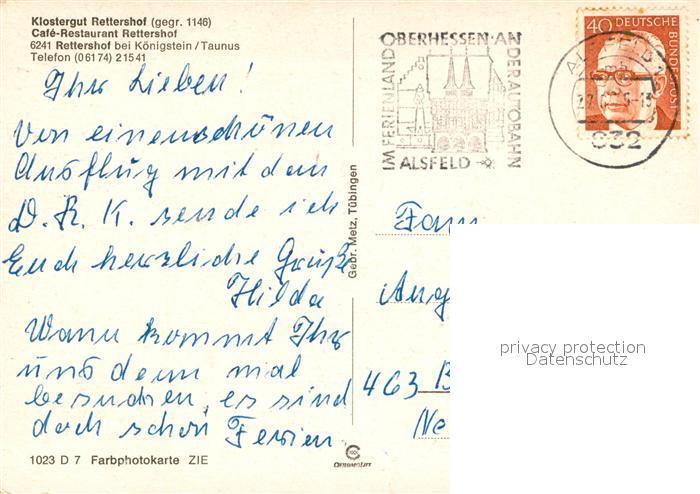 Klostergut Rettershof (gegr. 1146)
Café-Restaurant Rettershof
6241 Rettershof bei Königstein/Taunus
Telefon (06174) 21541
Ihr Lieben!
Von einen schönen
Ausflug mit dem
D.R.K. sende ich
Euch herzliche Grüße
Hilda
Wann kommt Ihr
uns denn mal
besuchen, es sind
doch schon Ferien
1023 D 7 Farbphotokarte ZIE
Gebr. Metz, Tübingen
IM FERIENLAND
OBERHESSEN·AN
DER AUTOBAHN
ALSFELD
40 DEUTSCHE
BUNDESPOST
632
Fam
Aug
463 B
Ne
privacy protection
Datenschutz